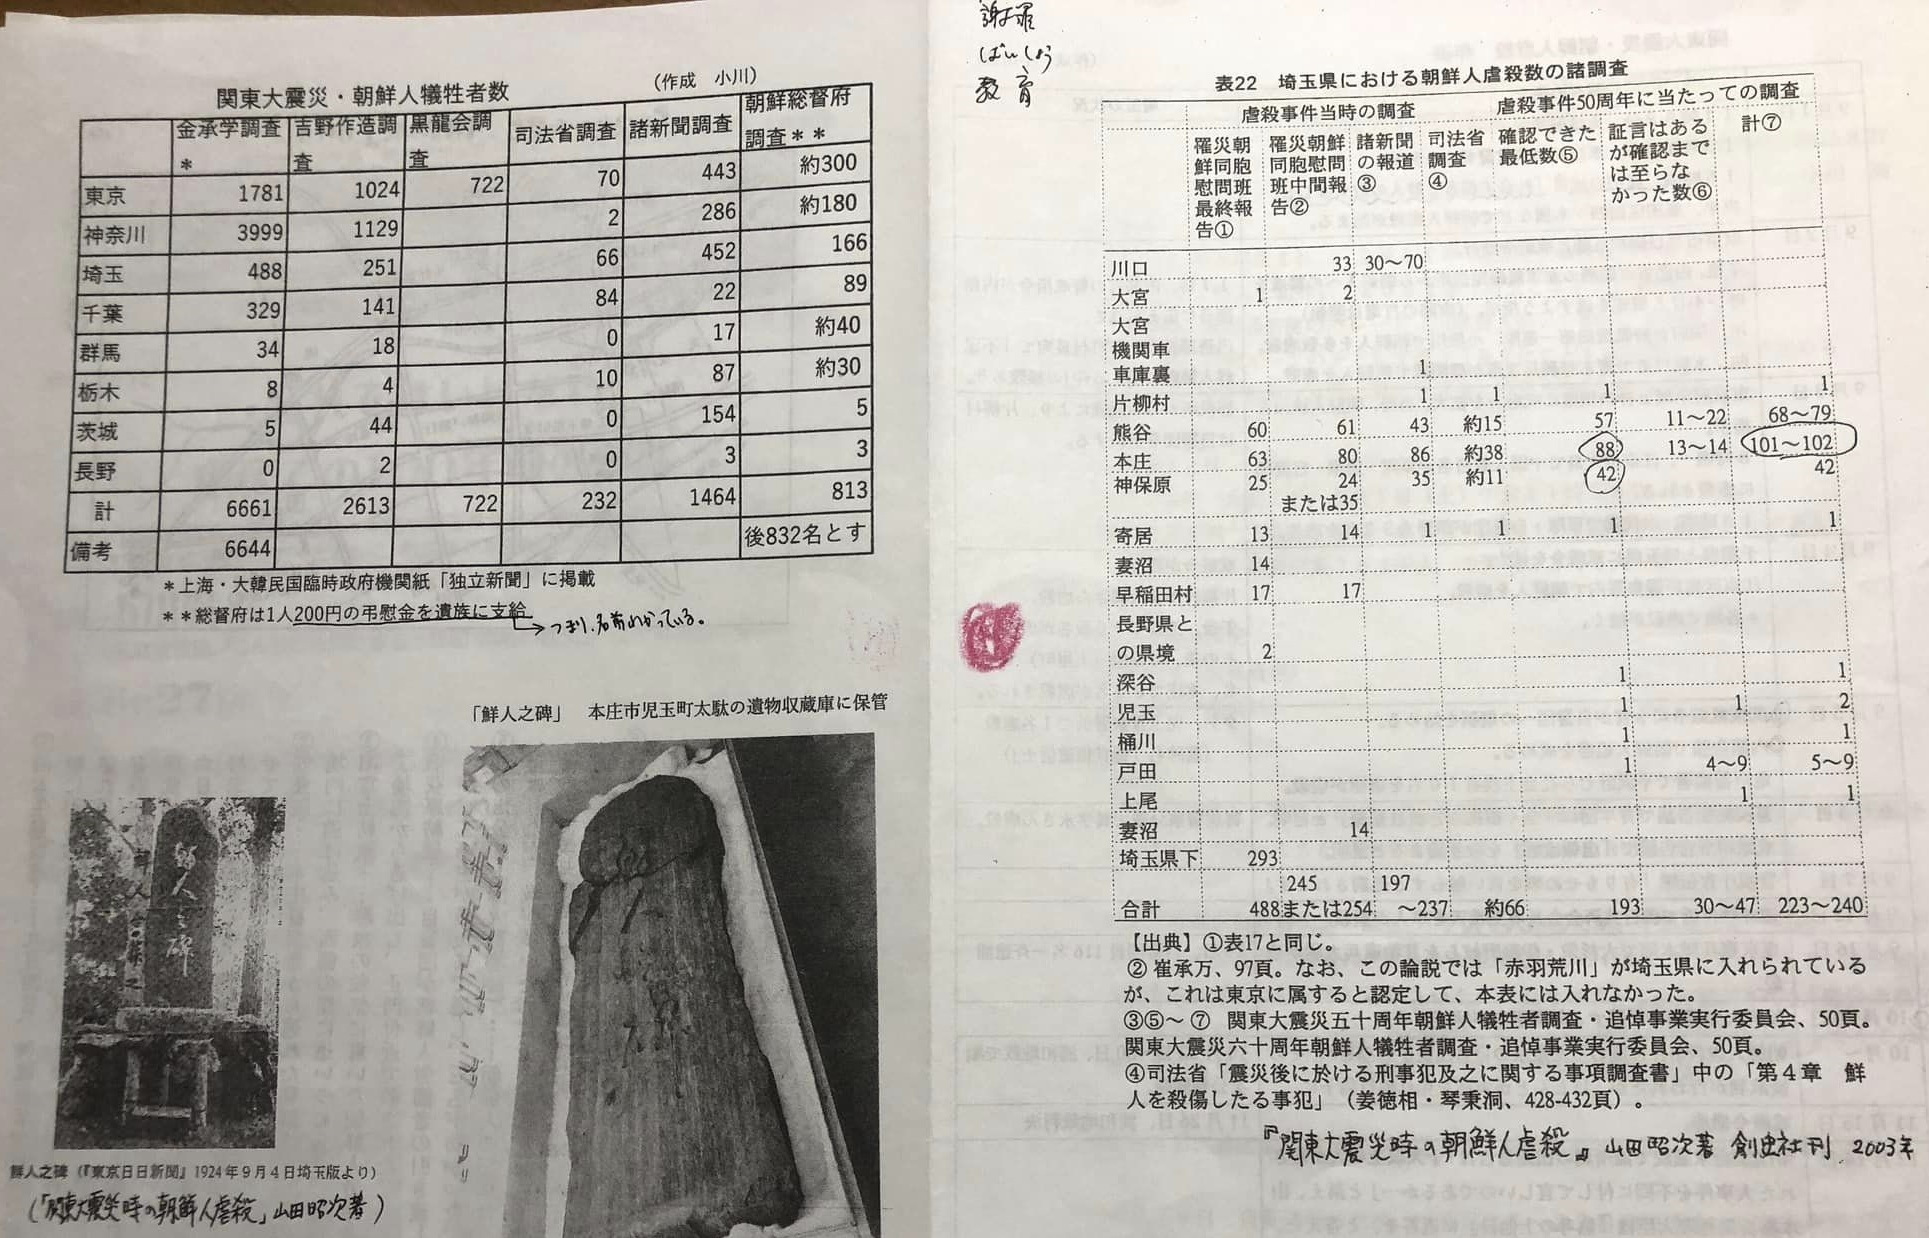 関東大震災・朝鮮人犠牲者数
(作成 小川)
金承学調査* 吉野作造調査 黒龍会調査 司法省調査 諸新聞調査 朝鮮総督府調査**
東京 1781 1024 722 70 443 約300
神奈川 3999 1129 2 286 約180
埼玉 488 251 66 452 166
千葉 329 141 84 22 89
群馬 34 18 0 17 約40
栃木 8 4 10 87 約30
茨城 5 44 0 154 5
長野 0 2 0 3 3
計 6661 2613 722 232 1464 813
備考 6644 後832名とす
*上海・大韓民国臨時政府機関紙「独立新聞」に掲載
**総督府は1人200円の弔慰金を遺族に支給
→つまり、名前わかっている。
「鮮人之碑」 本庄市児玉町太駄の遺物収蔵庫に保管
鮮人之碑
鮮人之碑(『東京日日新聞』1924年9月4日埼玉版より)
(「関東大震災時の朝鮮人虐殺」山田昭次著)
謝罪
ばいしょう
教育
表22 埼玉県における朝鮮人虐殺数の諸調査
虐殺事件当時の調査 虐殺事件50周年に当たっての調査
罹災朝鮮同胞慰問班最終報告① 罹災朝鮮同胞慰問班中間報告② 諸新聞の報道③ 司法省調査④ 確認できた最低数⑤ 証言はあるが確認までは至らなかった数⑥ 計⑦
川口 33 30〜70
大宮 1 2
大宮
機関車
車庫裏 1
片柳村 1 1 1 1
熊谷 60 61 43 約15 57 11〜22 68〜79
本庄 63 80 86 約38 88 13〜14 101〜102
神保原 25 24 35 約11 42 42
または35
寄居 13 14 1 1 1 1
妻沼 14
早稲田村 17 17
長野県と
の県境 2
深谷 1 1
児玉 1 1 2
桶川 1 1
戸田 1 4〜9 5〜9
上尾 1 1
妻沼 14
埼玉県下 293
245 197
合計 488 または254 〜237 約66 193 30〜47 223〜240
【出典】①表17と同じ。
②崔承万、97頁。なお、この論説では「赤羽荒川」が埼玉県に入れられている
が、これは東京に属すると認定して、本表には入れなかった。
③⑤〜⑦ 関東大震災五十周年朝鮮人犠牲者調査・追悼事業実行委員会、50頁。
関東大震災六十周年朝鮮人犠牲者調査・追悼事業実行委員会、50頁。
④司法省「震災後に於ける刑事犯及之に関する事項調査書」中の「第4章 鮮
人を殺傷したる事犯」(姜徳相・琴秉洞、428-432頁)。
『関東大震災時の朝鮮人虐殺』山田昭次著 創史社刊 2003年